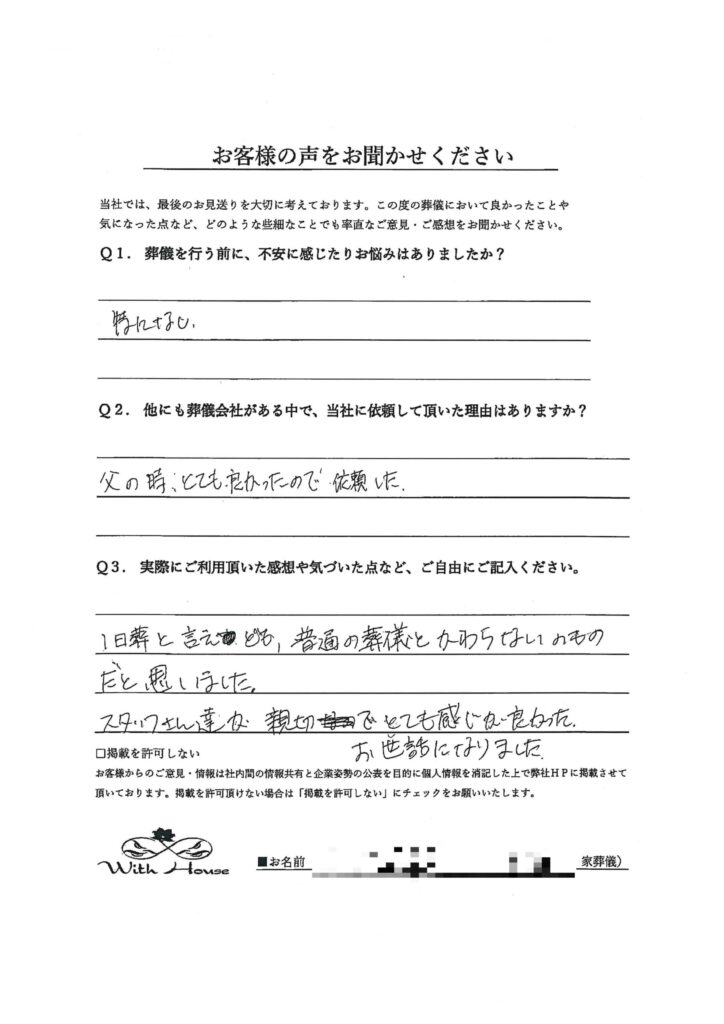 お客様の声をお聞かせください
当社では、最後のお見送りを大切に考えております。この度の葬儀において良かったことや
気になった点など、どのような些細なことでも率直なご意見・ご感想をお聞かせください。
Q1. 葬儀を行う前に、不安に感じたりお悩みはありましたか？
特になし.
Q2. 他にも葬儀会社がある中で、当社に依頼して頂いた理由はありますか？
父の時、とても良かったので依頼した.
Q3. 実際にご利用頂いた感想や気づいた点など、ご自由にご記入ください。
1日葬と言えども, 普通の葬儀とかわらないのもの
だと思いました.
スタッフさん達が親切でとても感じが良かった.
お世話になりました.
□掲載を許可しない
お客様からのご意見・情報は社内間の情報共有と企業姿勢の公表を目的に個人情報を消記した上で弊社HPに掲載させて
頂いております。掲載を許可頂けない場合は「掲載を許可しない」にチェックをお願いいたします。
With House
■お名前 家葬儀）